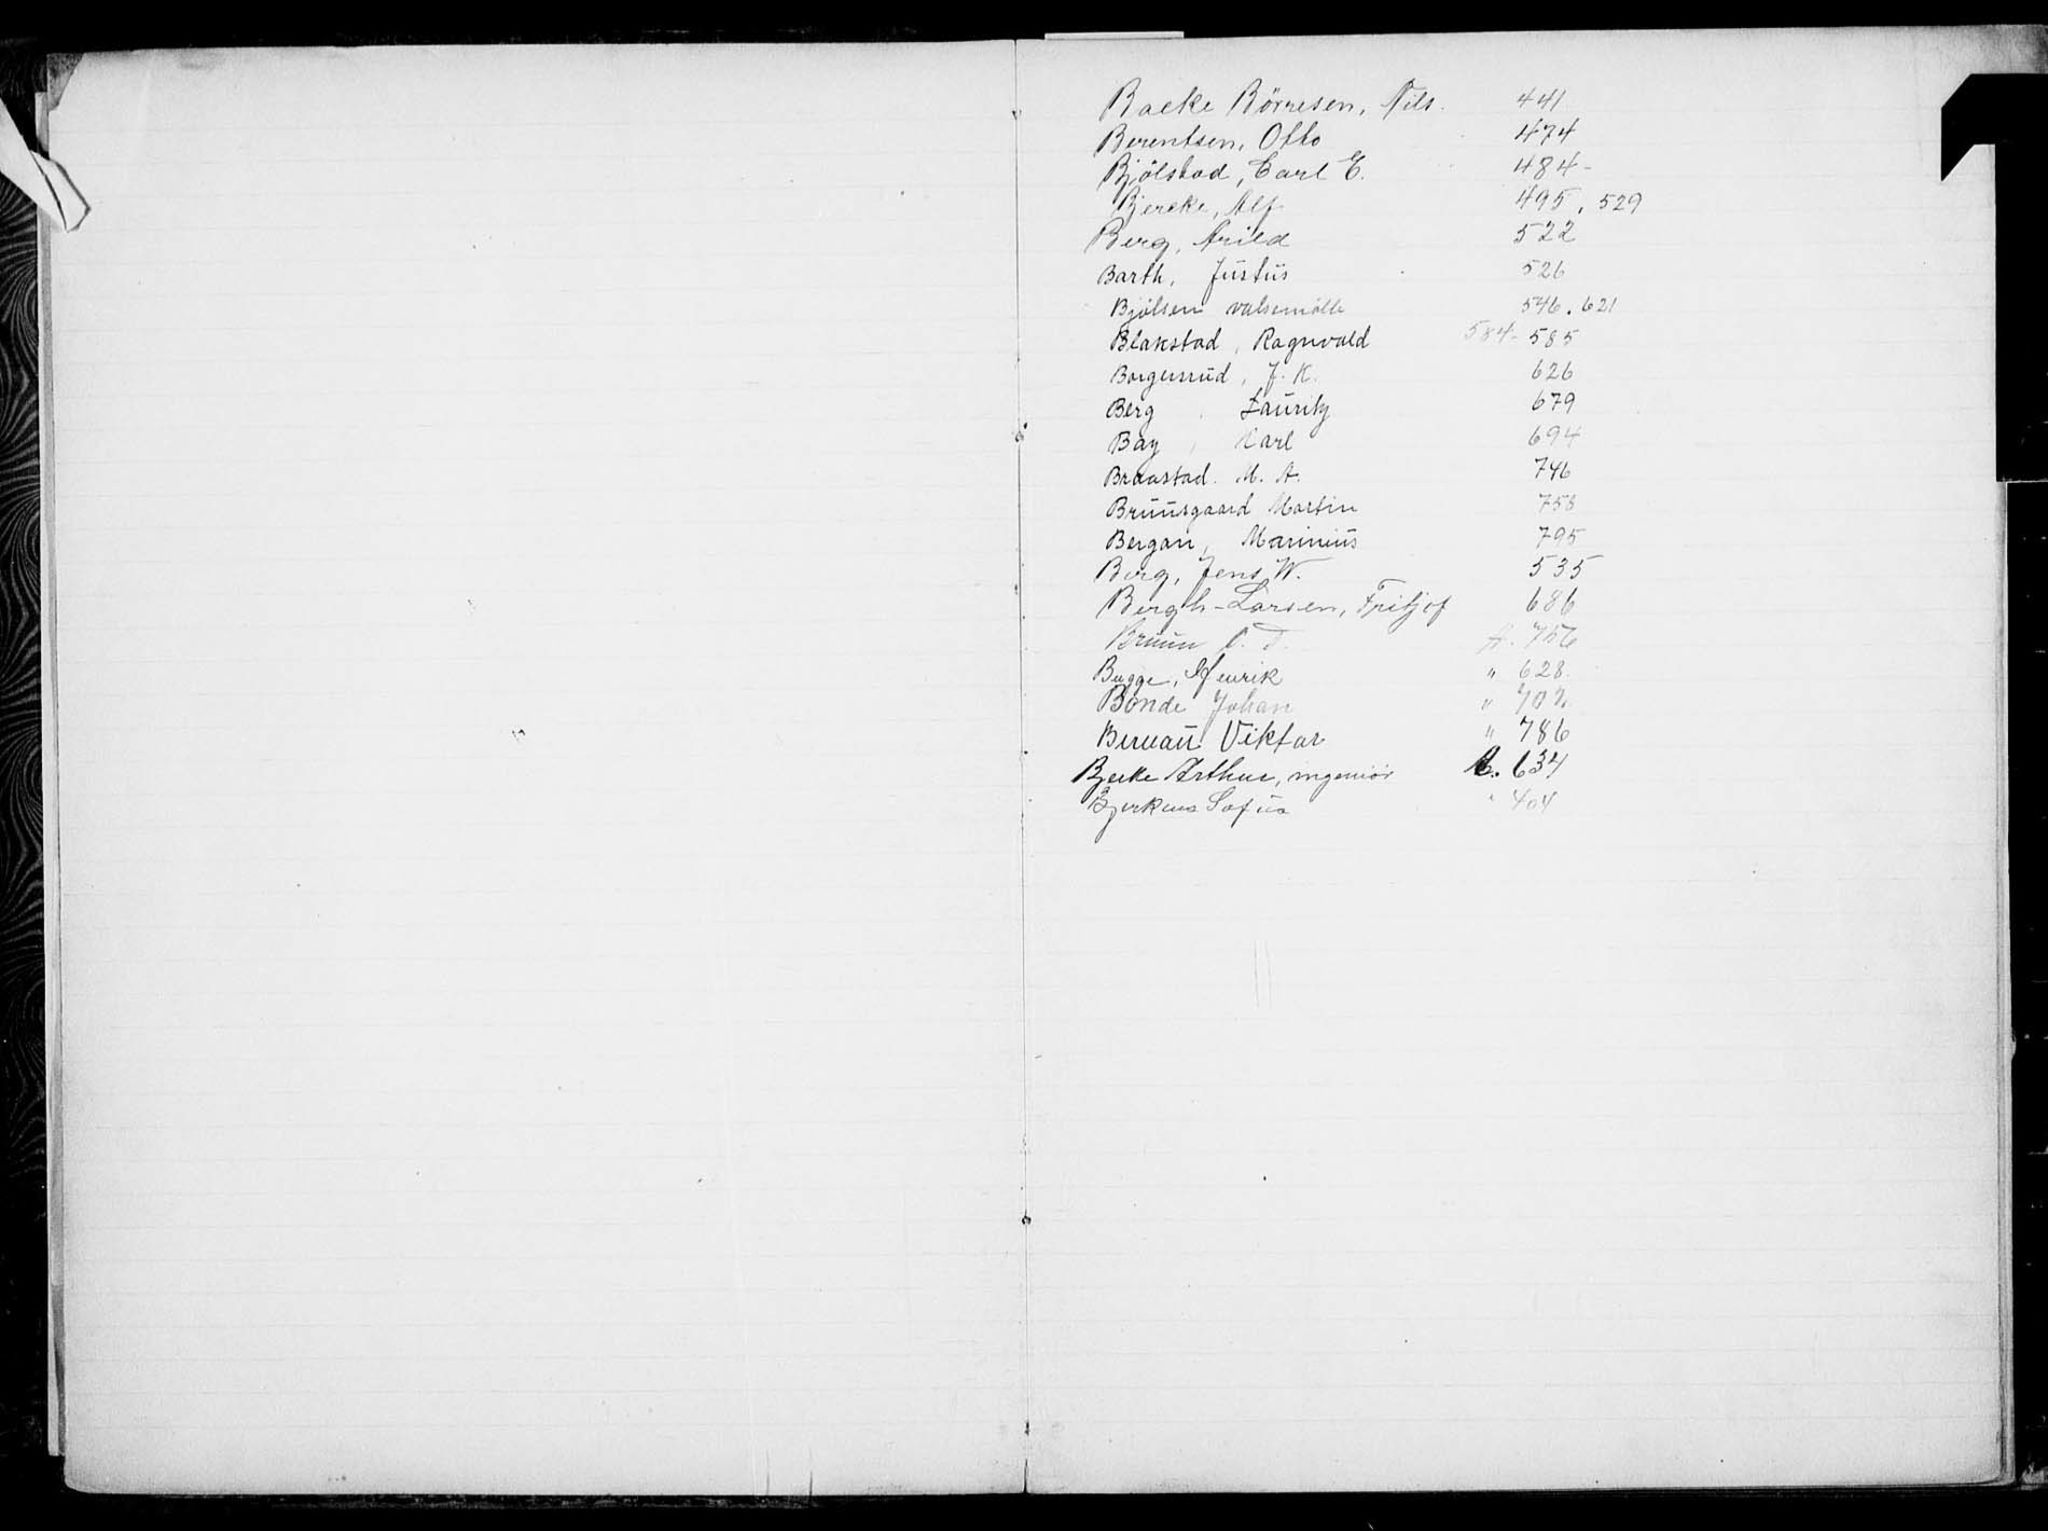 Backe Börresen, Nils. 441
Berentsen, Otto 474
Bjölstad, Carl E. 484-
Bjercke, Alf 495, 529
Berg, Arild 522
Barth, Justus 526
Bjölsen valsemölle 546. 621
Blakstad, Ragnvald 584- 585
Borgersrud, J. K. 626
Berg, Lauritz 679
Bay, Karl 694
Braastad. M. A. 746
Bruusgaard Martin 758
Bergan, Marinius 795
Berg, Jens W. 535
Bergh-Larsen, Fritjof 686
Bruun 756
Bugge, Henrik " 628.
Bonde Johan "
Bernau Viktor " 786
Bjerke Arthur, ingeniör A. 634
Bjerknes Sofus " 404